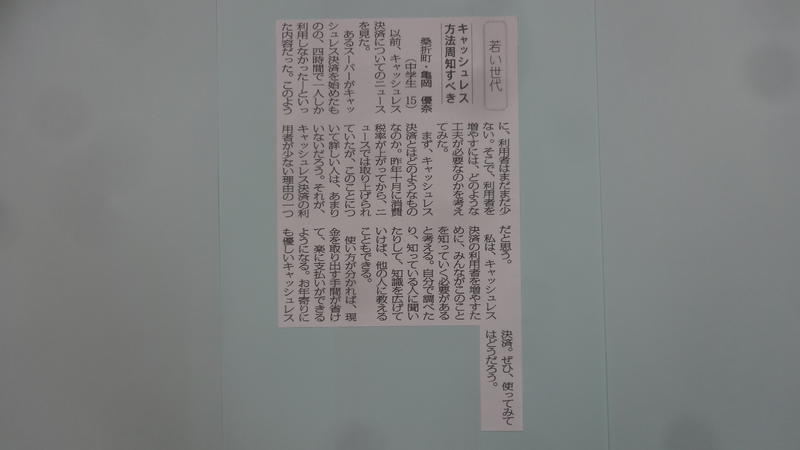 若い世代
キャッシュレス
方法周知すべき
桑折町・亀岡 優奈
(中学生 15)
以前、キャッシュレス
決済についてのニュース
を見た。
あるスーパーがキャッ
シュレス決済を始めたも
のの、四時間で一人しか
利用しなかった―といっ
た内容だった。このよう
に、利用者はまだまだ少
ない。そこで、利用者を
増やすには、どのような
工夫が必要なのかを考え
てみた。
まず、キャッシュレス
決済とはどのようなもの
なのか。昨年十月に消費
税率が上がってから、ニ
ュースでは取り上げられ
ていたが、このことにつ
いて詳しい人は、あまり
いないだろう。それが、
キャッシュレス決済の利
用者が少ない理由の一つ
だと思う。
私は、キャッシュレス
決済の利用者を増やすた
めに、みんながこのこと
を知っていく必要がある
と考える。自分で調べた
り、知っている人に聞い
たりして、知識を広げて
いけば、他の人に教える
こともできる。
使い方が分かれば、現
金を取り出す手間が省け
て、楽に支払いができる
ようになる。お年寄りに
も優しいキャッシュレス
決済。ぜひ、使ってみて
はどうだろう。